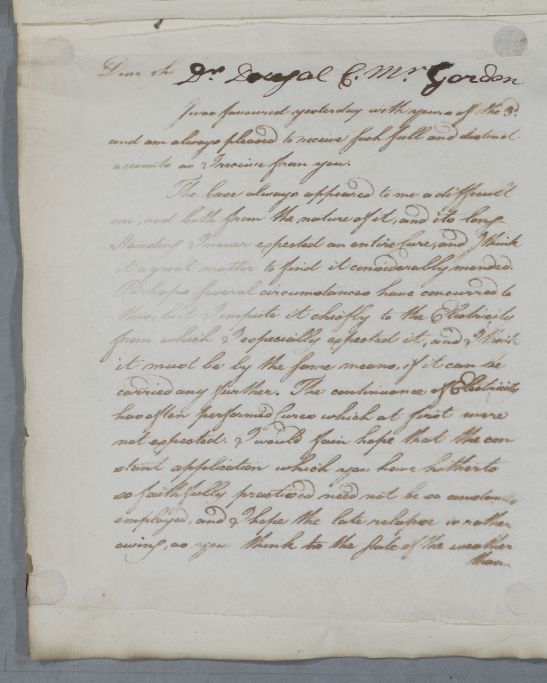 Dear Sir Dr. Dougal C. Mr. Gordon
I was favoured yesterday with yours of the 3d.
and am always pleased to receive such full and distinct
accounts as I receive from you.
The Case always appeared to me a difficult
one, and both from the nature of it, and its long
standing I never expected an entire Cure; and I think
it a great matter to find it considerably mended.
Perhaps several circumstances have concurred to
this, but I impute it chiefly to the Electricity
from which I especially expected it, and I think
it must be by the same means, if it can be
carried any further. The continuance of Electricity
has often performed Cures which at first were
not expected, & I would fain hope that the con
stant application which you have hitherto
so faithfully practised need not be so constantly
employed, and I hope the late relapse is rather
owing, as you think to the state of the weather
than